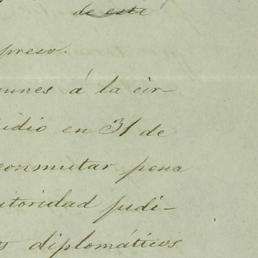 de este
preso.
unes á la cir-
idio en 31 de
conmutar pena
utoridad judi-
os diplomáticos